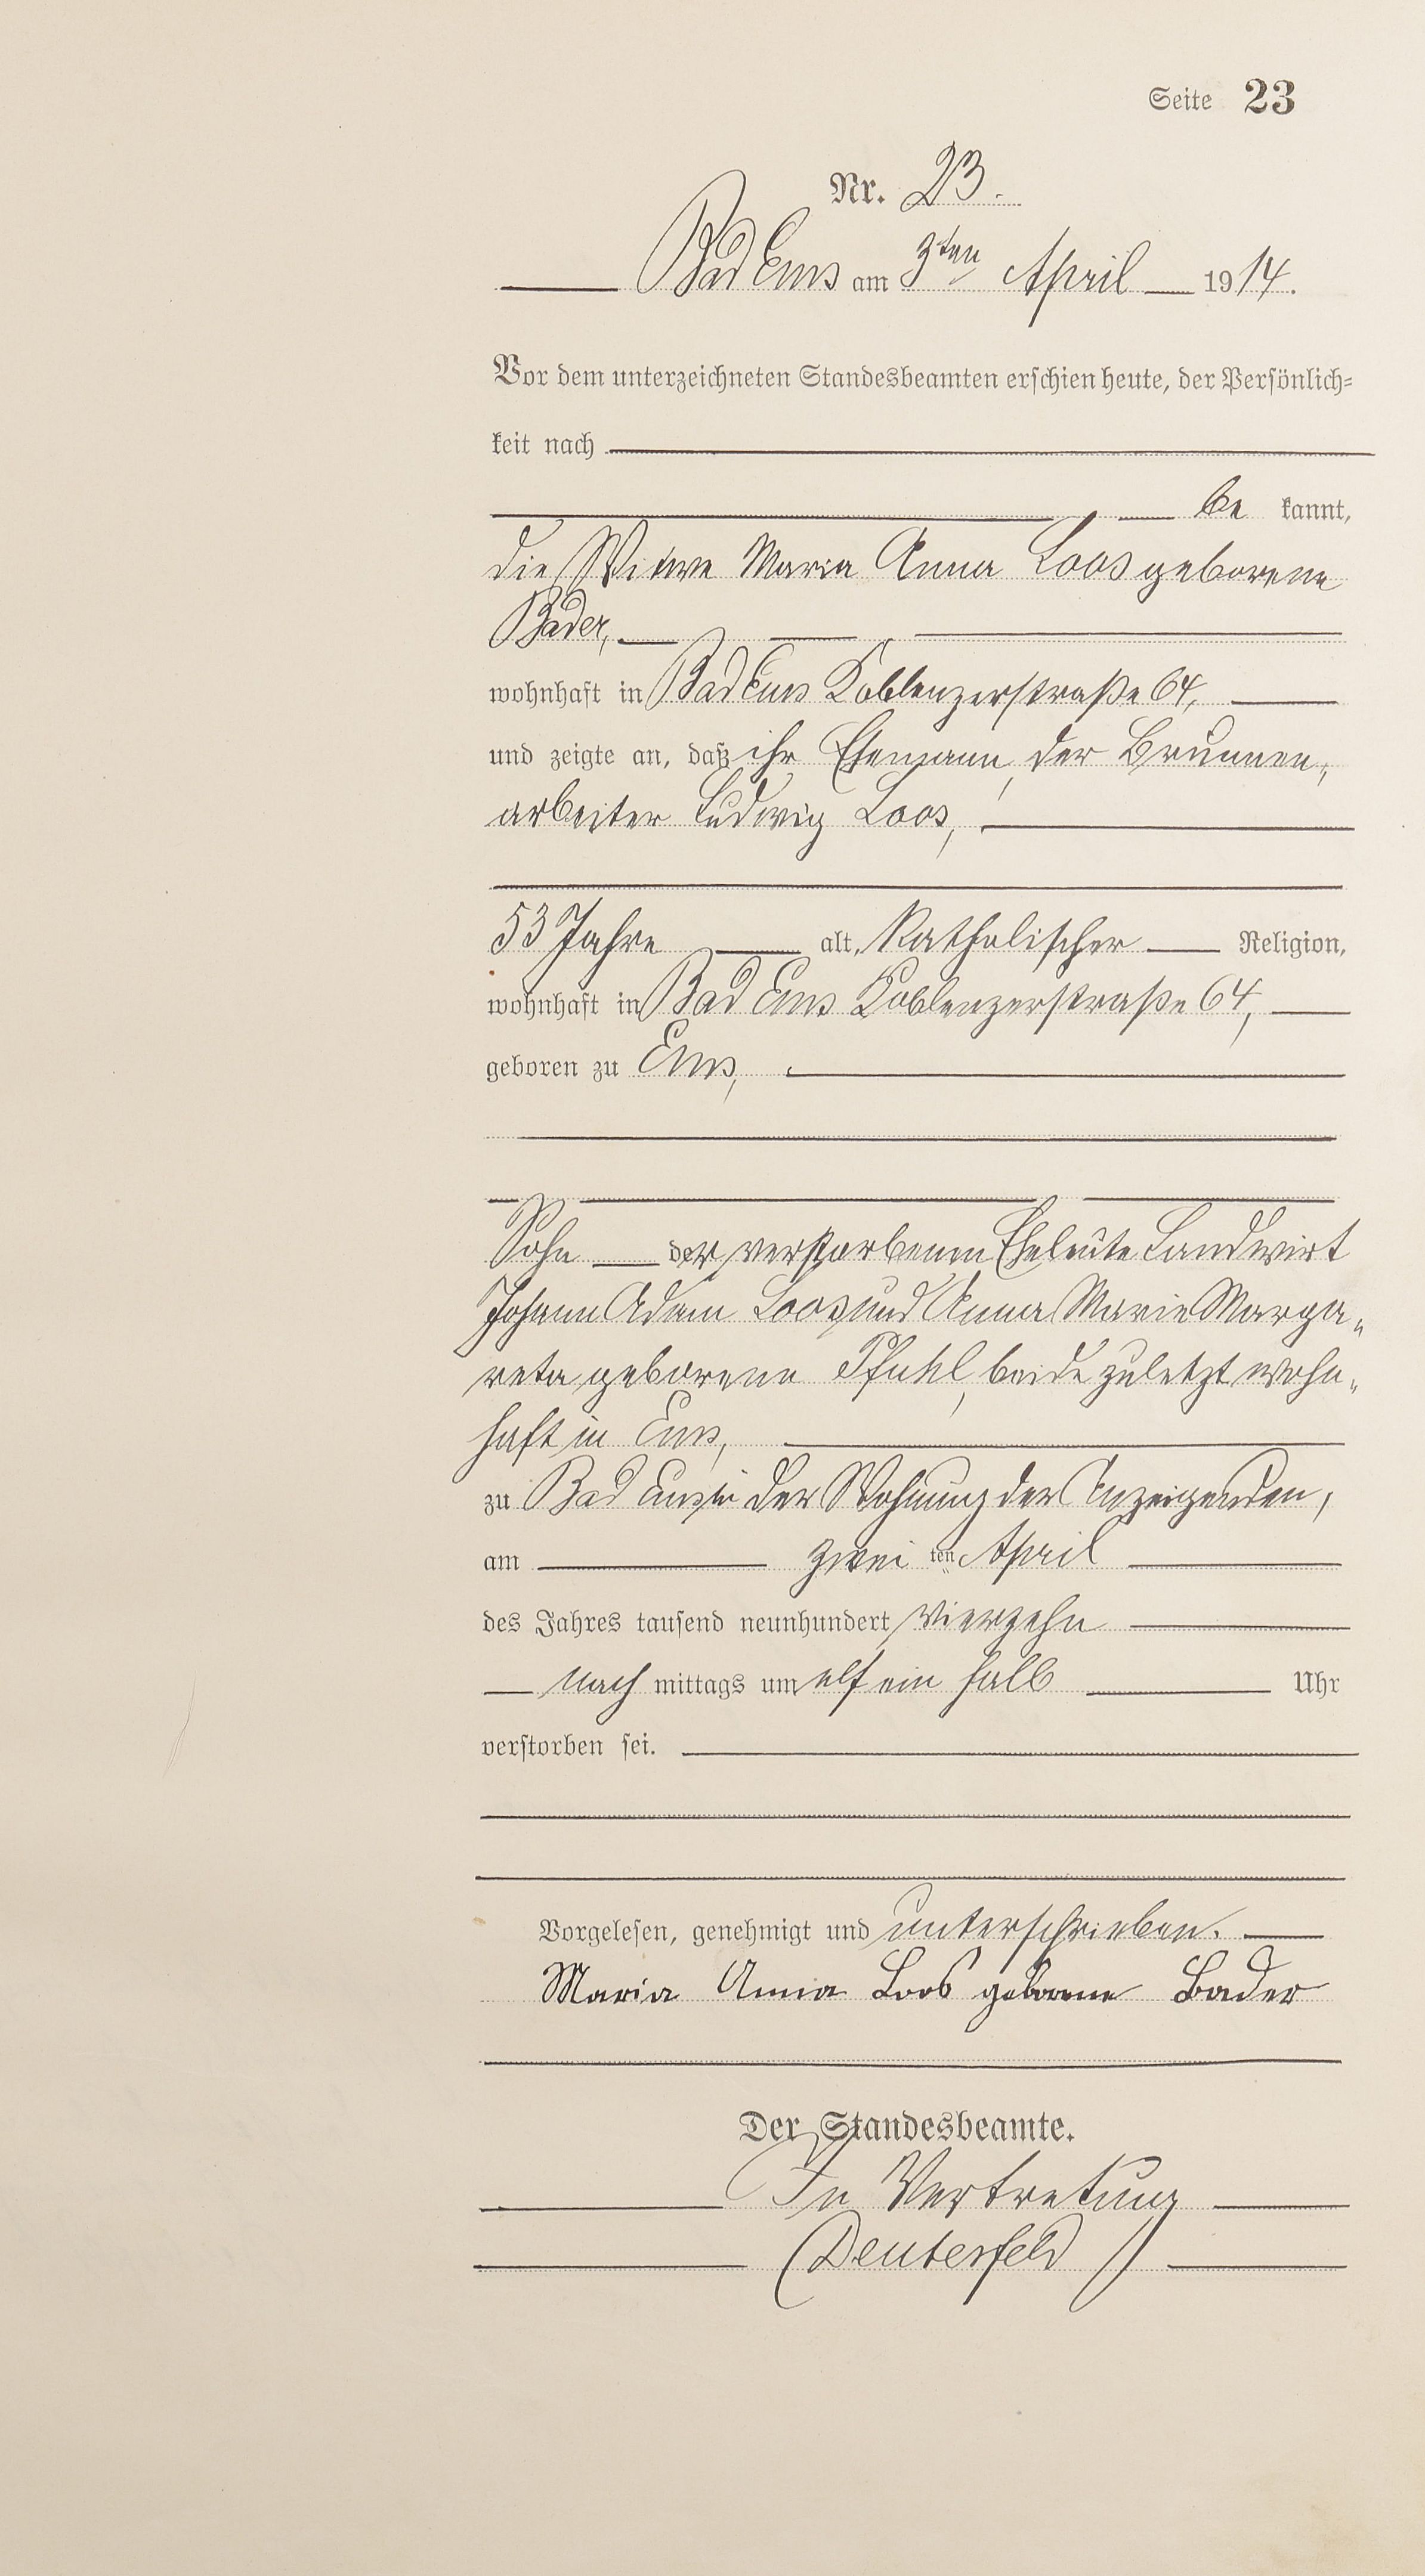 Seite 23
Nr. 23.
Bad Ems am 3ten April 1914.
Vor dem unterzeichneten Standesbeamten erschien heute, der Persönlich=
keit nach
be kannt,
die Witwe Maria Anna Loos geborene
Bader,
wohnhaft in Bad Ems Koblenzerstraße 64,
und zeigte an, daß ihr Ehemann, der Brunnen„
arbeiter Ludwig Loos,
53 Jahre alt, Katholischer Religion,
wohnhaft in Bad Ems Koblenzerstraße 64,
geboren zu Ems,
Sohn der verstorbenen Eheleute Landwirt
Johann Adam Loos und Anna Marie Marga„
reta geborene Pfuhl, beide zuletzt wohn„
haft in Ems,
zu Bad Ems in der Wohnung der Anzeigenden,
am zwei ten April
des Jahres tausend neunhundert vierzehn
nach mittags um elf ein halb Uhr
verstorben sei.
Vorgelesen, genehmigt und unterschrieben.
Maria Anna Loos geborene Bader
Der Standesbeamte.
In Vertretung
(Deutesfeld)